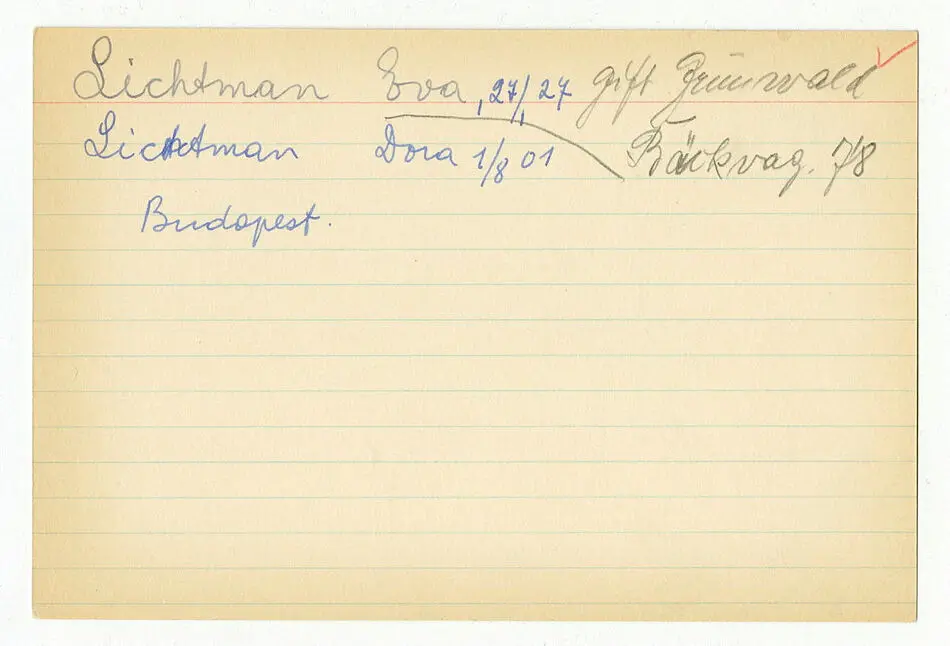 Lichtman Eva, 27/1 27 gift Grünwald
Lichtman Dora 1/8 01 Bäckvag. 7/8
Budapest.